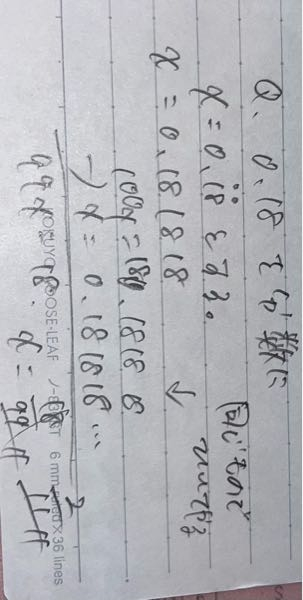 Q. 0.18を分数に
x = 0.1̇8̇とする。
x = 0.181818
同じもので
100x = 18.1818
-) x = 0.181818...
99x = 18. x = 18/99 2/11
KOKUYO LOOSE-LEAF 6 mm ruled×36 lines